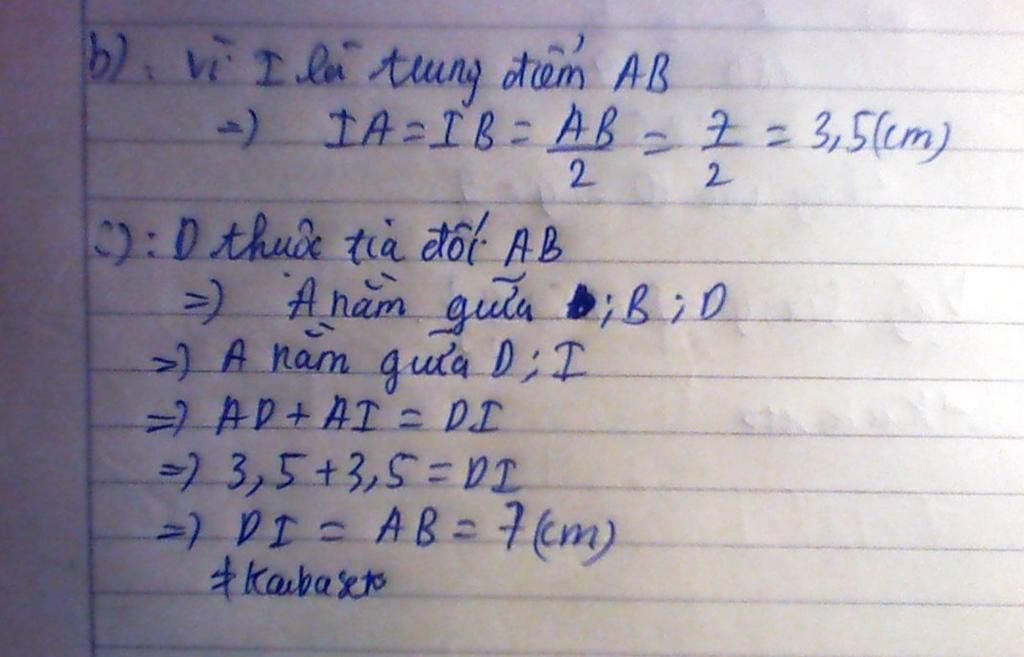 b): Vì I là trung điểm AB
=) IA = IB = AB/2 = 7/2 = 3,5(cm)
c): D thuộc tia đối AB
=) A nằm giữa ; B ; D
=) A nằm giữa D ; I
=) AD + AI = DI
=) 3,5 + 3,5 = DI
=) DI = AB = 7(cm)